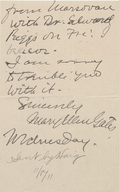 from Marsovan
with Dr. Edward
Riggs on Fri.
I am sorry
to trouble you
with it.
Sincerely
Mary Ellen Gates
Wednesday.